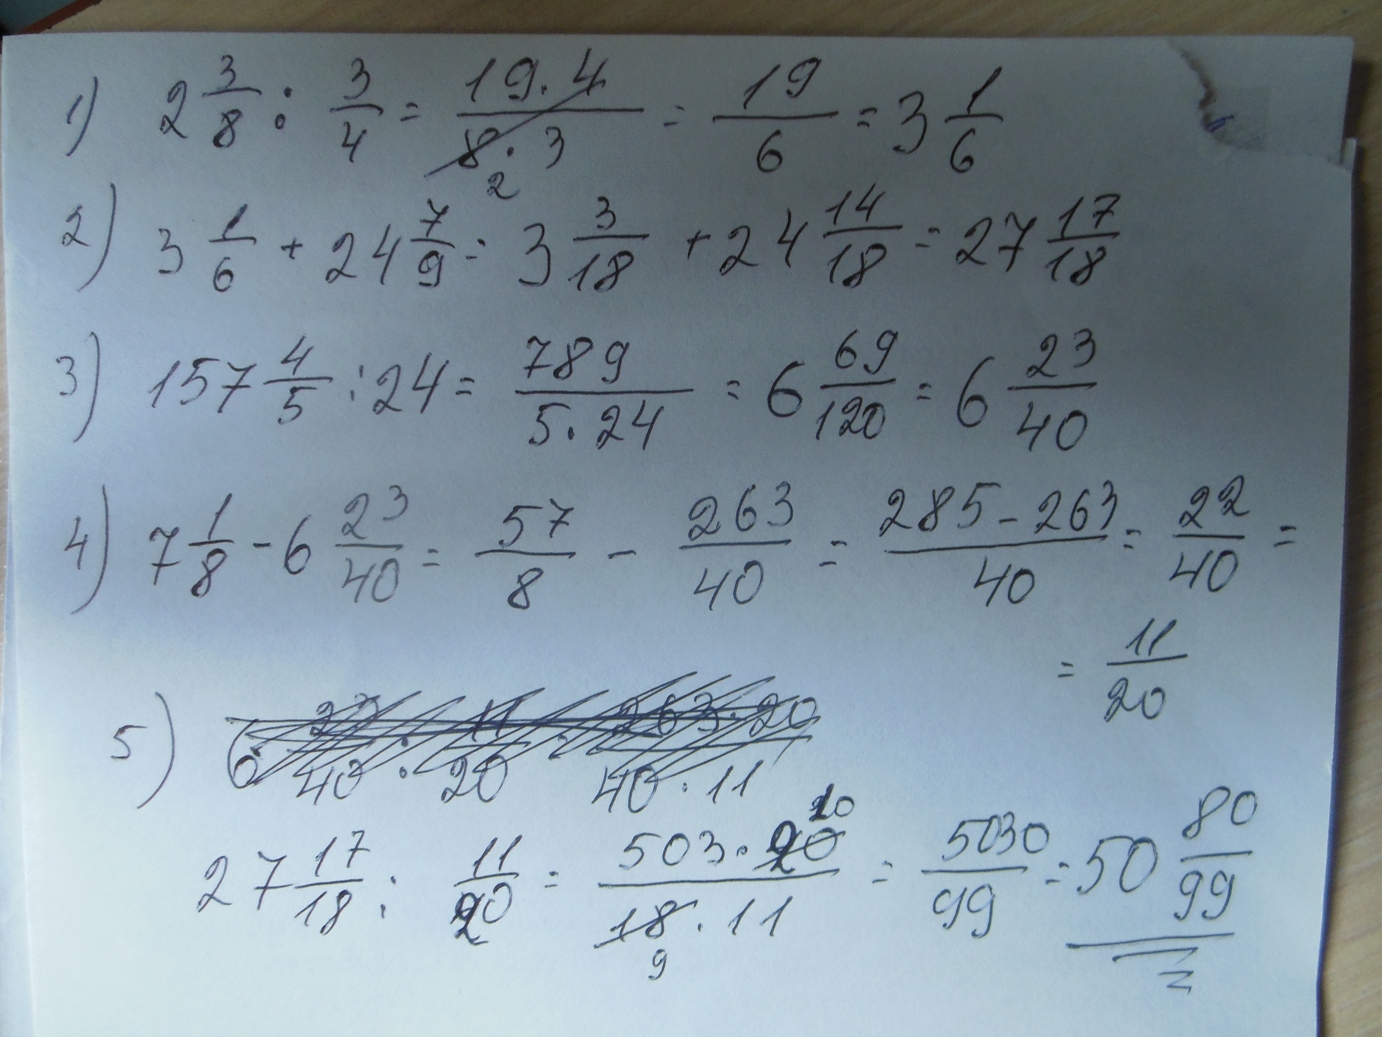 1) 2 3/8 : 3/4 = 19·4/8·3 2 = 19/6 = 3 1/6
2) 3 1/6 + 24 7/9 = 3 3/18 + 24 14/18 = 27 17/18
3) 157 4/5 : 24 = 789/5·24 = 6 69/120 = 6 23/40
4) 7 1/8 - 6 23/40 = 57/8 - 263/40 = 285-263/40 = 22/40 =
= 11/20
5) 6 23/40 : 11/20 = 263·20/40·11
27 17/18 : 11/20 = 503·20 10/18·11 9 = 5030/99 = 50 80/99